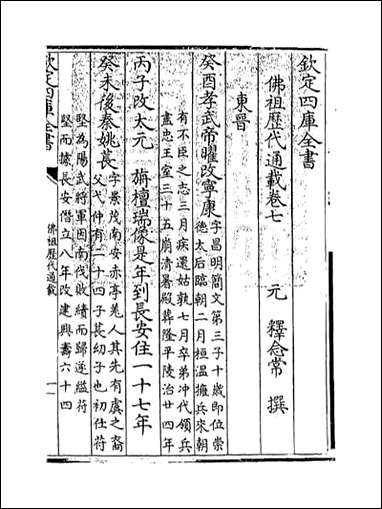 欽定四庫全書
佛祖歷代通載卷七
元 釋念常 撰
東晉
癸酉孝武帝曜改寧康字昌明簡文第三子十歲即位崇
德太后臨朝二月桓温擁兵來朝
有不臣之志三月疾還姑孰七月卒弟冲代領兵
盡忠王室三十五崩清暑殿葬隆平陵治廿四年
丙子改太元 旃檀瑞像是年到長安住一十七年
癸未後秦姚萇字景茂南安赤亭羌人其先有虞之裔
父弋仲有二十四子萇幼子也初仕苻
堅為陽武將軍因南伐敗績而歸遂縊苻
堅而據長安僣立八年改建興壽六十四
欽定四庫全書
佛祖歷代通載
一